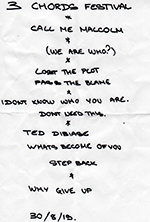 3 CHORDS FESTIVAL
*
CALL ME MALCOLM
*
(WE ARE WHO?)
*
LOST THE PLOT
PASS THE BLAME
*
I DONT KNOW WHO YOU ARE.
DONT NEED THIS.
*
TED DIBIASE
WHATS BECOME OF YOU
STEP BACK
*
WHY GIVE UP
30/8/15.